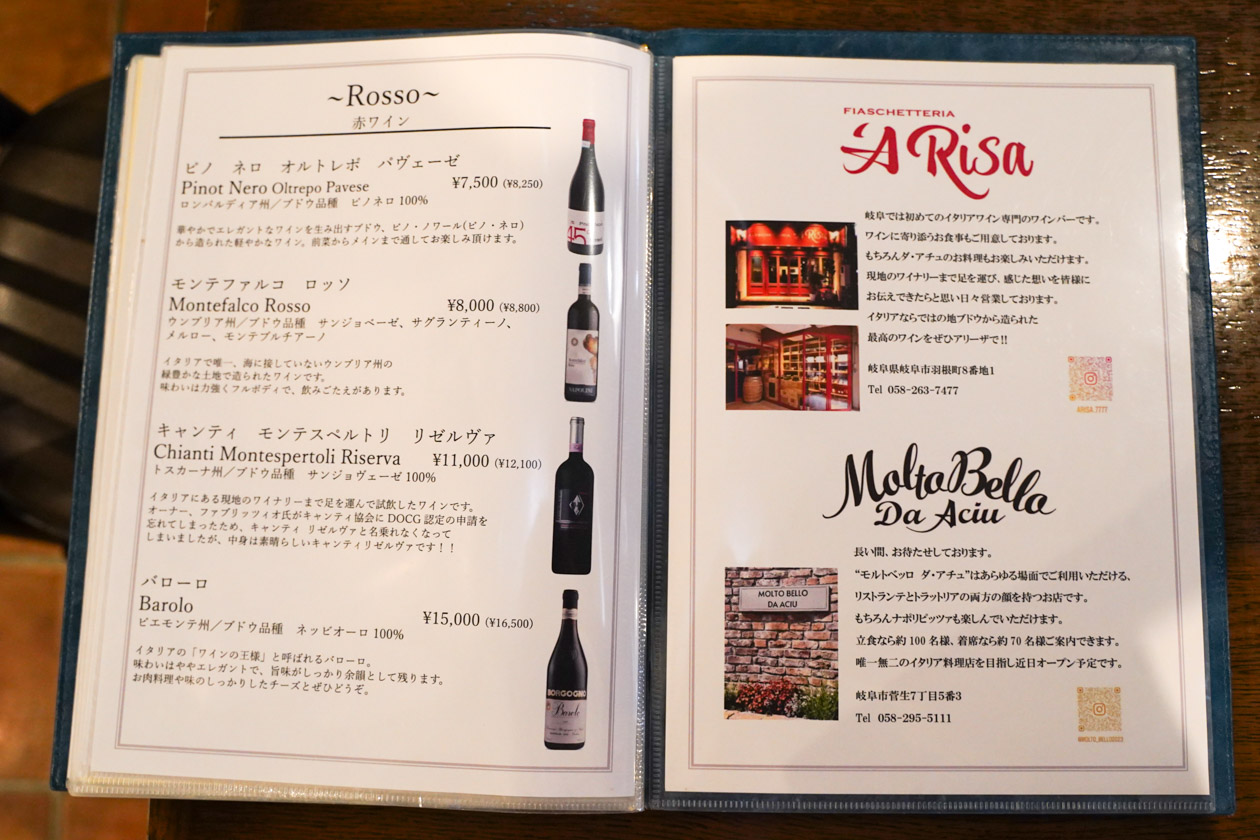 ~Rosso~
赤ワイン
ピノ ネロ オルトレポ パヴェーゼ
Pinot Nero Oltrepo Pavese ¥7,500 (¥8,250)
ロンバルディア州／ブドウ品種 ピノネロ 100%
華やかでエレガントなワインを生み出すブドウ、ピノ・ノワール(ピノ・ネロ)
から造られた軽やかなワイン。前菜からメインまで通してお楽しみ頂けます。
45
モンテファルコ ロッソ
Montefalco Rosso ¥8,000 (¥8,800)
ウンブリア州／ブドウ品種 サンジョベーゼ、サグランティーノ、
メルロー、モンテプルチアーノ
イタリアで唯一、海に接していないウンブリア州の
緑豊かな土地で造られたワインです。
味わいは力強くフルボディで、飲みごたえがあります。
キャンティ モンテスペルトリ リゼルヴァ
Chianti Montespertoli Riserva ¥11,000 (¥12,100)
トスカーナ州／ブドウ品種 サンジョヴェーゼ 100%
イタリアにある現地のワイナリーまで足を運んで試飲したワインです。
オーナー、ファブリッツィオ氏がキャンティ協会に DOCG 認定の申請を
忘れてしまったため、キャンティ リゼルヴァと名乗れなくなって
しまいましたが、中身は素晴らしいキャンティリゼルヴァです！！
バローロ
Barolo ¥15,000 (¥16,500)
ピエモンテ州／ブドウ品種 ネッビオーロ 100%
イタリアの「ワインの王様」と呼ばれるバローロ。
味わいはややエレガントで、旨味がしっかり余韻として残ります。
お肉料理や味のしっかりしたチーズとぜひどうぞ。
BORGOGNO
Barolo
FIASCHETTERIA
'A RiSa
岐阜では初めてのイタリアワイン専門のワインバーです。
ワインに寄り添うお食事もご用意しております。
もちろんダ・アチュのお料理もお楽しみいただけます。
現地のワイナリーまで足を運び、感じた想いを皆様に
お伝えできたらと思い日々営業しております。
イタリアならではの地ブドウから造られた
最高のワインをぜひアリーザで!!
岐阜県岐阜市羽根町8番地1
Tel 058-263-7477
ARISA.7777
Molto Bello
Da Aciu
長い間、お待たせしております。
“モルトベッロ ダ・アチュ”はあらゆる場面でご利用いただける、
リストランテとトラットリアの両方の顔を持つお店です。
もちろんナポリピッツァも楽しんでいただけます。
立食なら約 100 名様、着席なら約 70 名様ご案内できます。
唯一無二のイタリア料理店を目指し近日オープン予定です。
MOLTO BELLO
DA ACIU
岐阜市菅生7丁目5番3
Tel 058-295-5111